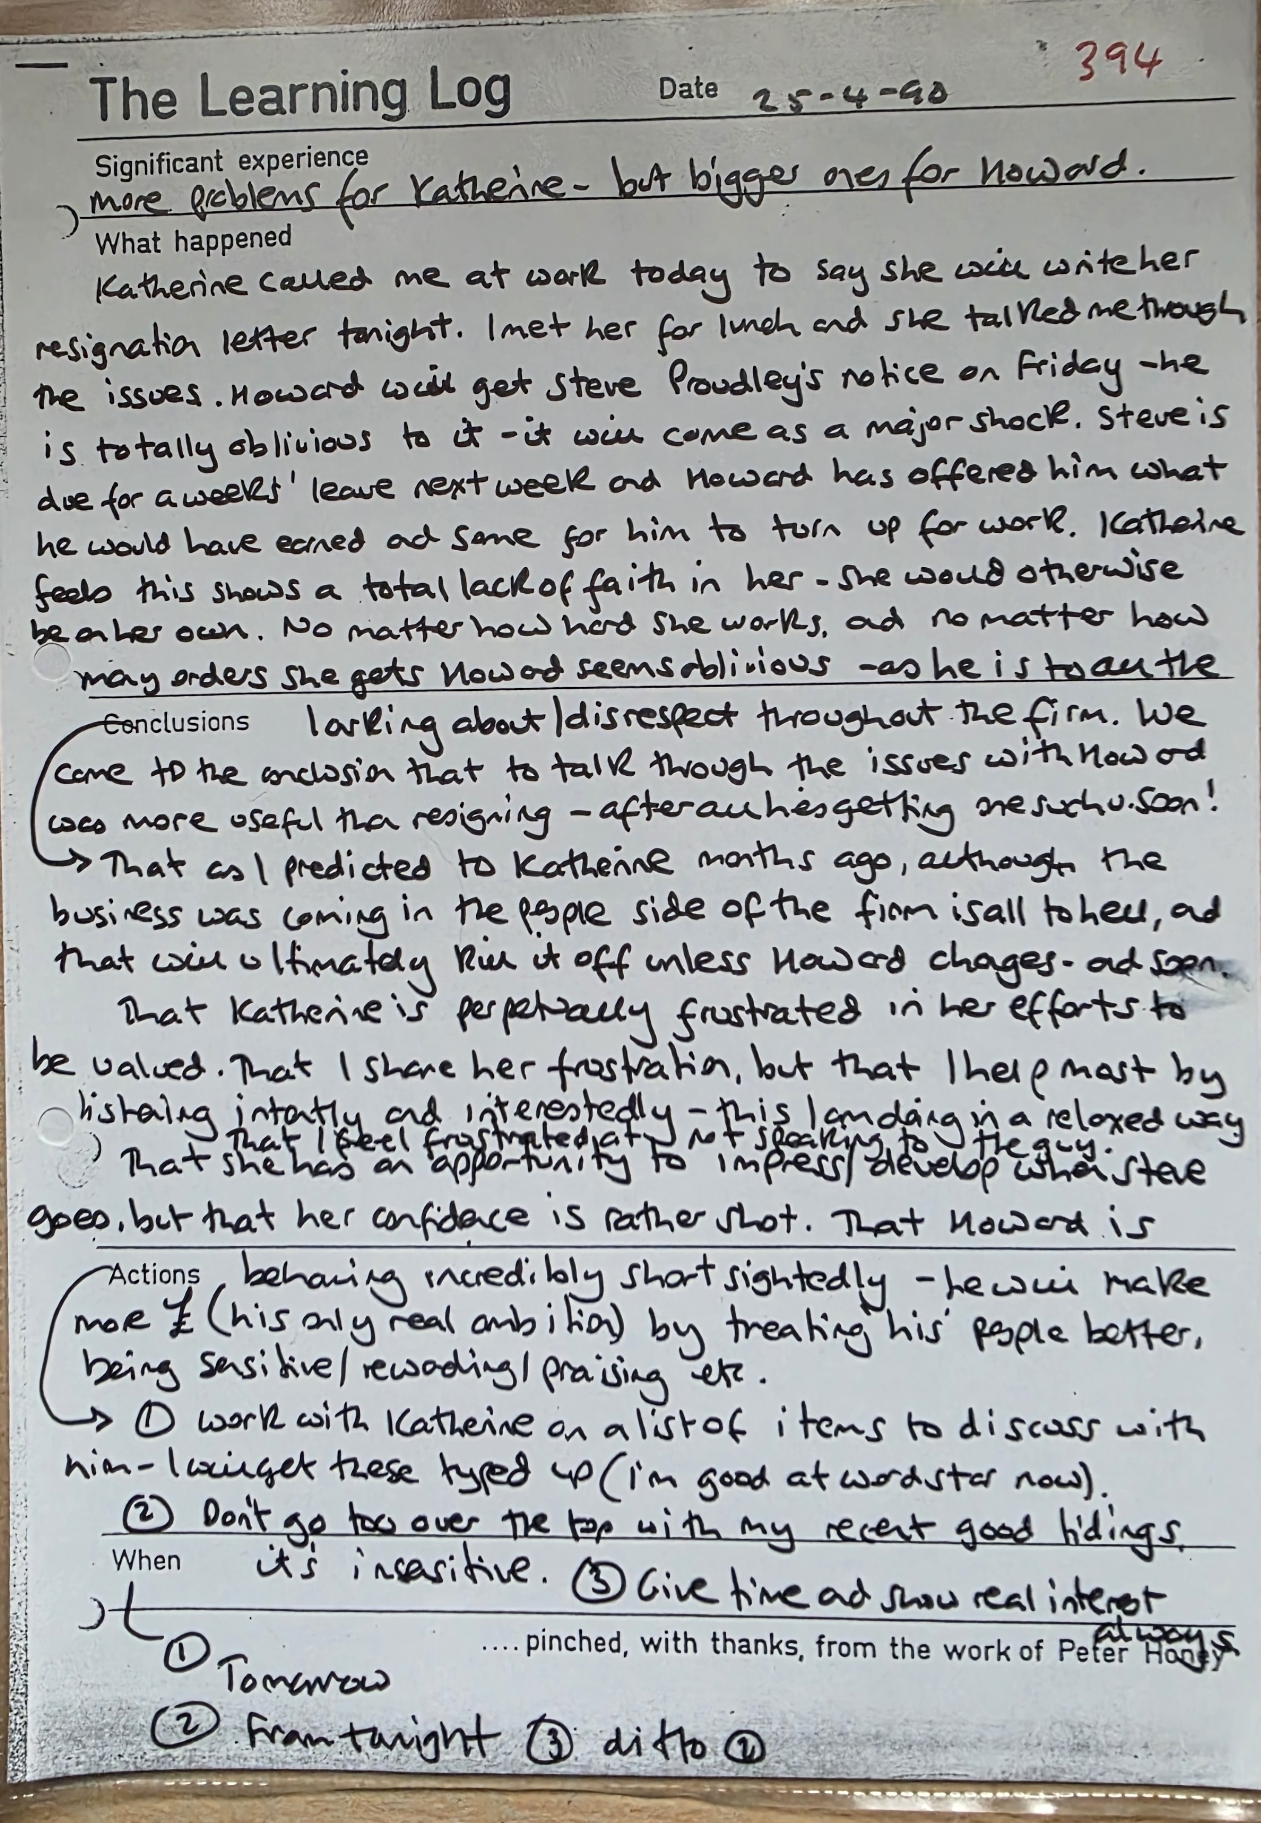 394
The Learning Log Date 25-4-90
Significant experience
more problems for Katherine - but bigger ones for Howard.
What happened
Katherine called me at work today to say she will write her
resignation letter tonight. I met her for lunch and she talked me through
the issues. Howard will get Steve Proudley's notice on Friday - he
is totally oblivious to it - it will come as a major shock. Steve is
due for a weeks' leave next week and Howard has offered him what
he would have earned and some for him to turn up for work. Katherine
feels this shows a total lack of faith in her - she would otherwise
be on her own. No matter how hard she works, and no matter how
many orders she gets Howard seems oblivious - as he is to all the
Conclusions larking about/disrespect throughout the firm. We
came to the conclusion that to talk through the issues with Howard
was more useful than resigning - after all he's getting one such v. soon!
→ That as I predicted to Katherine months ago, although the
business was coming in the people side of the firm is all to hell, and
that will ultimately kill it off unless Howard changes - and soon.
That Katherine is perpetually frustrated in her efforts to
be valued. That I share her frustration, but that I help most by
listening intently and interestedly - this I am doing in a relaxed way
That I feel frustrated at not speaking to the guy.
That she has an opportunity to impress/develop when Steve
goes, but that her confidence is rather shot. That Howard is
Actions behaving incredibly short sightedly - he will make
more £ (his only real ambition) by treating his people better,
being sensitive/rewarding/praising etc.
→ ① work with Katherine on a list of items to discuss with
him - I will get these typed up (I'm good at wordstar now).
② Don't go too over the top with my recent good tidings,
When it's insensitive. ③ Give time and show real interest
always
.... pinched, with thanks, from the work of Peter Honey
① Tomorrow
② From tonight ③ ditto ②